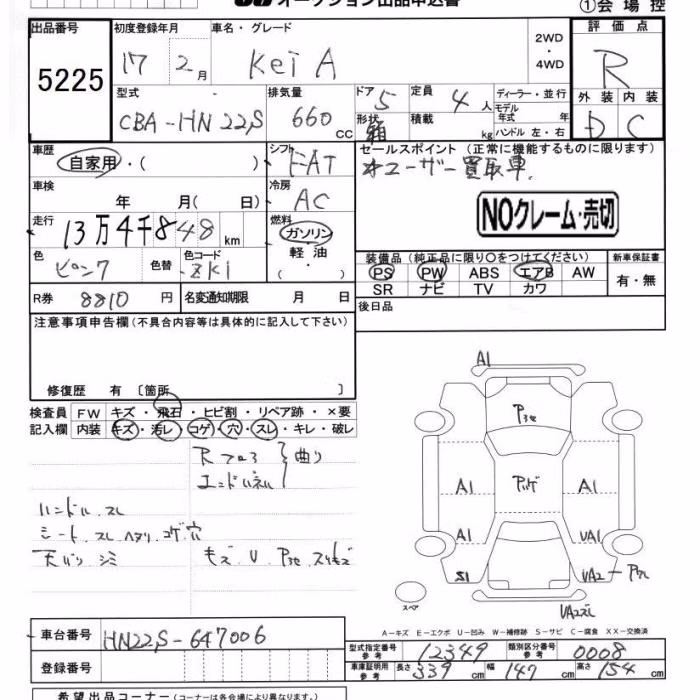 オークション出品申込書
①会場控
出品番号 5225
初度登録年月 17 2月
車名・グレード Kei A
2WD・4WD
評価点 R
型式 CBA-HN22S
排気量 660 CC
ドア 5 形状 箱
定員 4人 積載 kg
ディーラー・並行
モデル年式 年
ハンドル 左・右
外装 D 内装 C
車歴 自家用・( )
シフト FAT
セールスポイント (正常に機能するものに限ります)
オユーザー買取車
車検 年 月( 日)
冷房 AC
NOクレーム・売切
走行 13万4千848 km
燃料 ガソリン・軽油・
色 ピンク 色替 色コード ZKI
装備品 (純正品に限り○をつけてください)
PS PW ABS エアB AW
SR ナビ TV カワ
新車保証書 有・無
R券 8810円
名変通知期限 月 日
後日品
注意事項申告欄 (不具合内容等は具体的に記入して下さい)
修復歴 有 〔箇所 〕
検査員記入欄
FW キズ・飛石・ヒビ割・リペア跡・×要
内装 キズ・汚レ・コゲ・穴・スレ・キレ・破レ
Rフロア
エンドパネル
曲り
ハンドル スレ
シート スレ ヘタリ コゲ穴
天バリ シミ
キズ U Pヤセ スリキズ
A1
Pヤセ
A1 A1
A1 UA1
S1 UA2
スペア
A-キズ E-エクボ U-凹み W-補修跡 S-サビ C-腐食 XX-交換済
車台番号 HN22S-647006
型式指定番号 参考 12349
類別区分番号 参考 0008
登録番号
車庫証明用 参考 長さ 339cm 幅 147cm 高さ 154cm
希望出品コーナー (コーナーは各会場により異なります。)